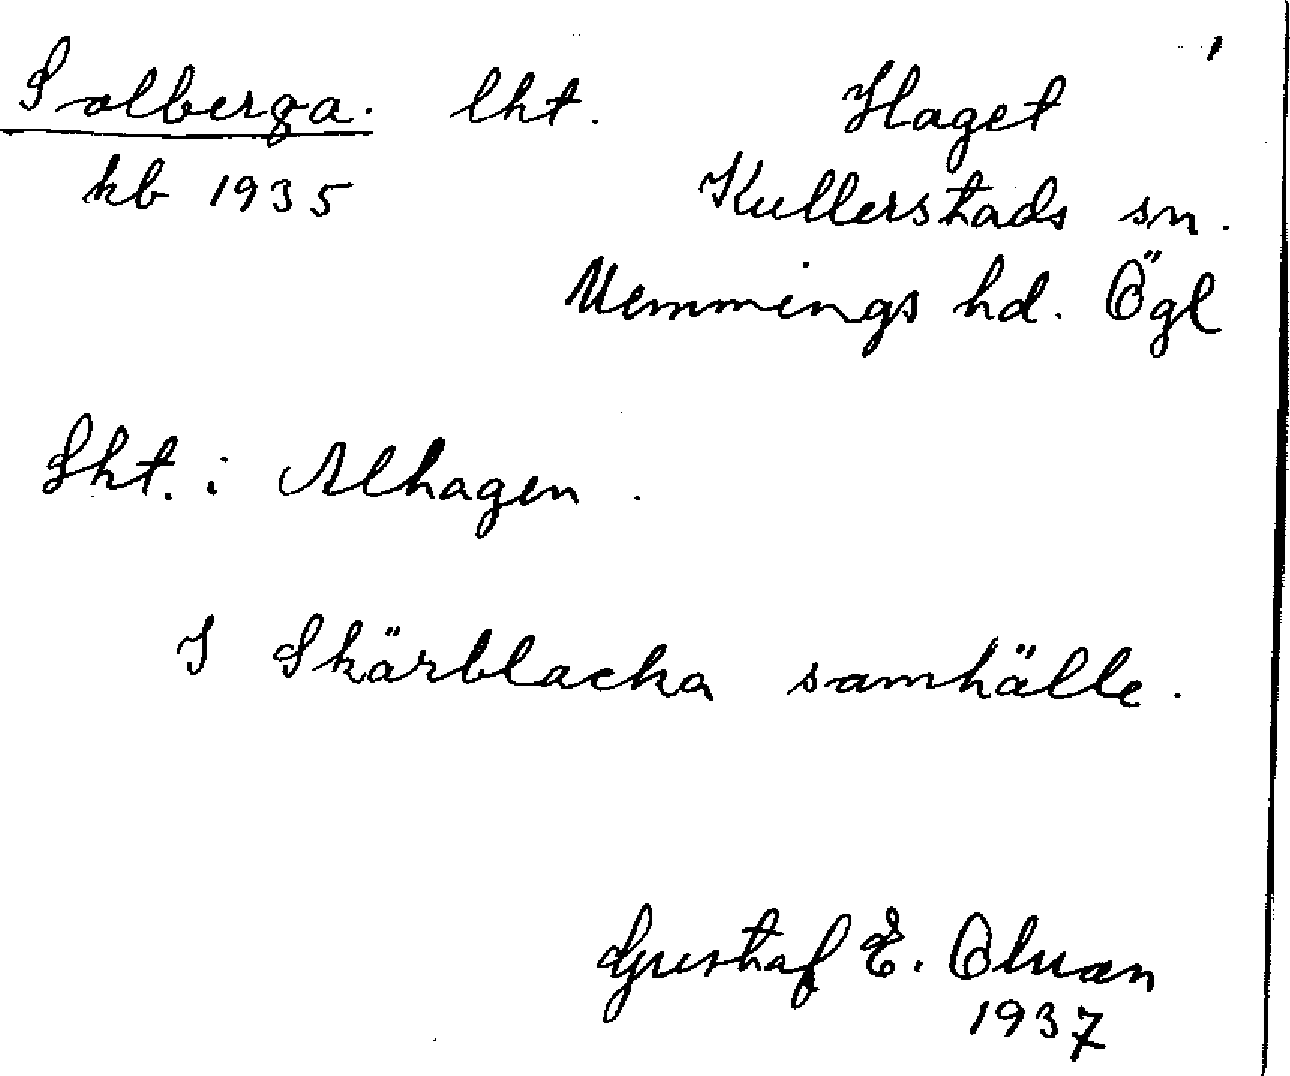 Solberga. lht. Haget
kb 1935 Kullerstads sn.
Memmings hd. Ögl
Lht. i Alhagen.
I Skärblacka samhälle.
Gustaf E.
1937